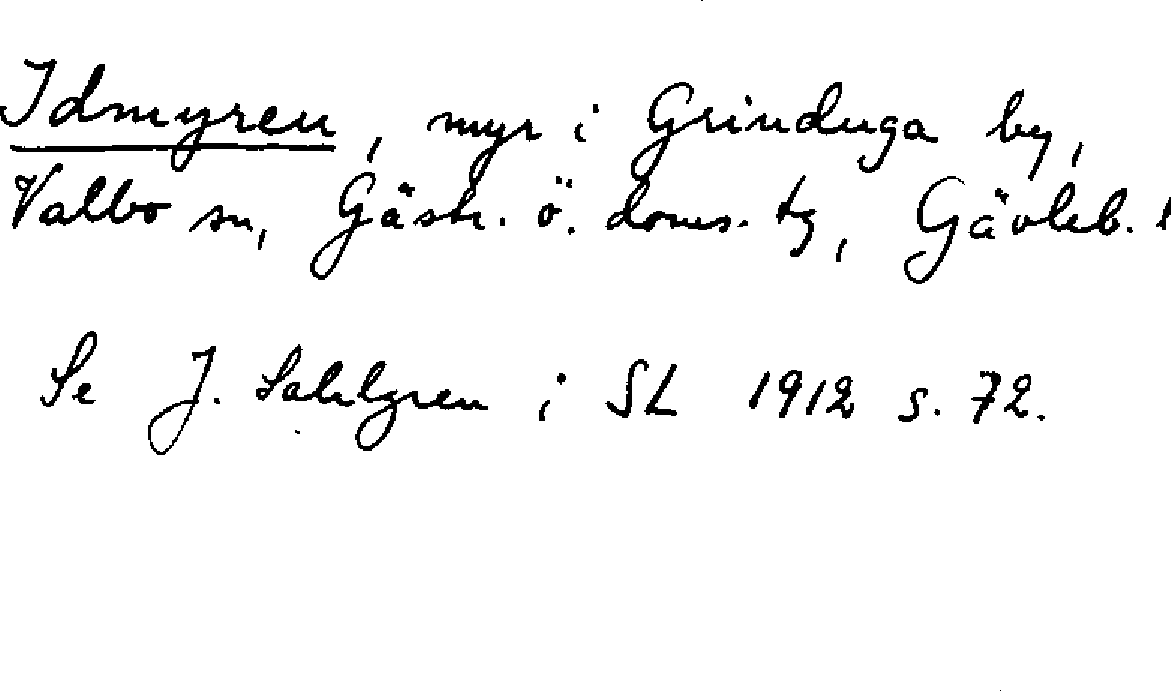 Idmyren, myr i Grinduga by,
Valbo sn, Gästr. ö. doms. tg, Gävleb. l
Se J. Sahlgren i SL 1912 s. 72.